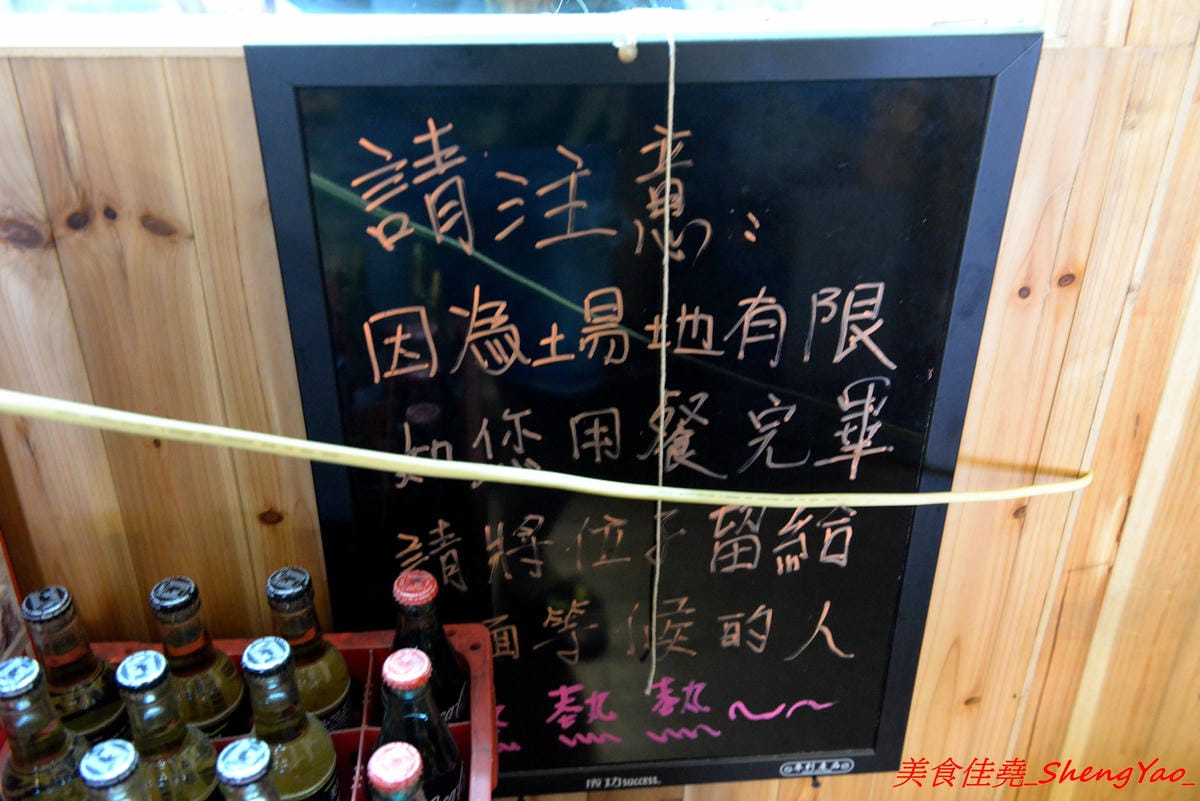 請注意:
因為場地有限
如您用餐完畢
請將位子留給
面等候的人
熱熱~~
成功success.
專利產品
美食佳堯_ShengYao_